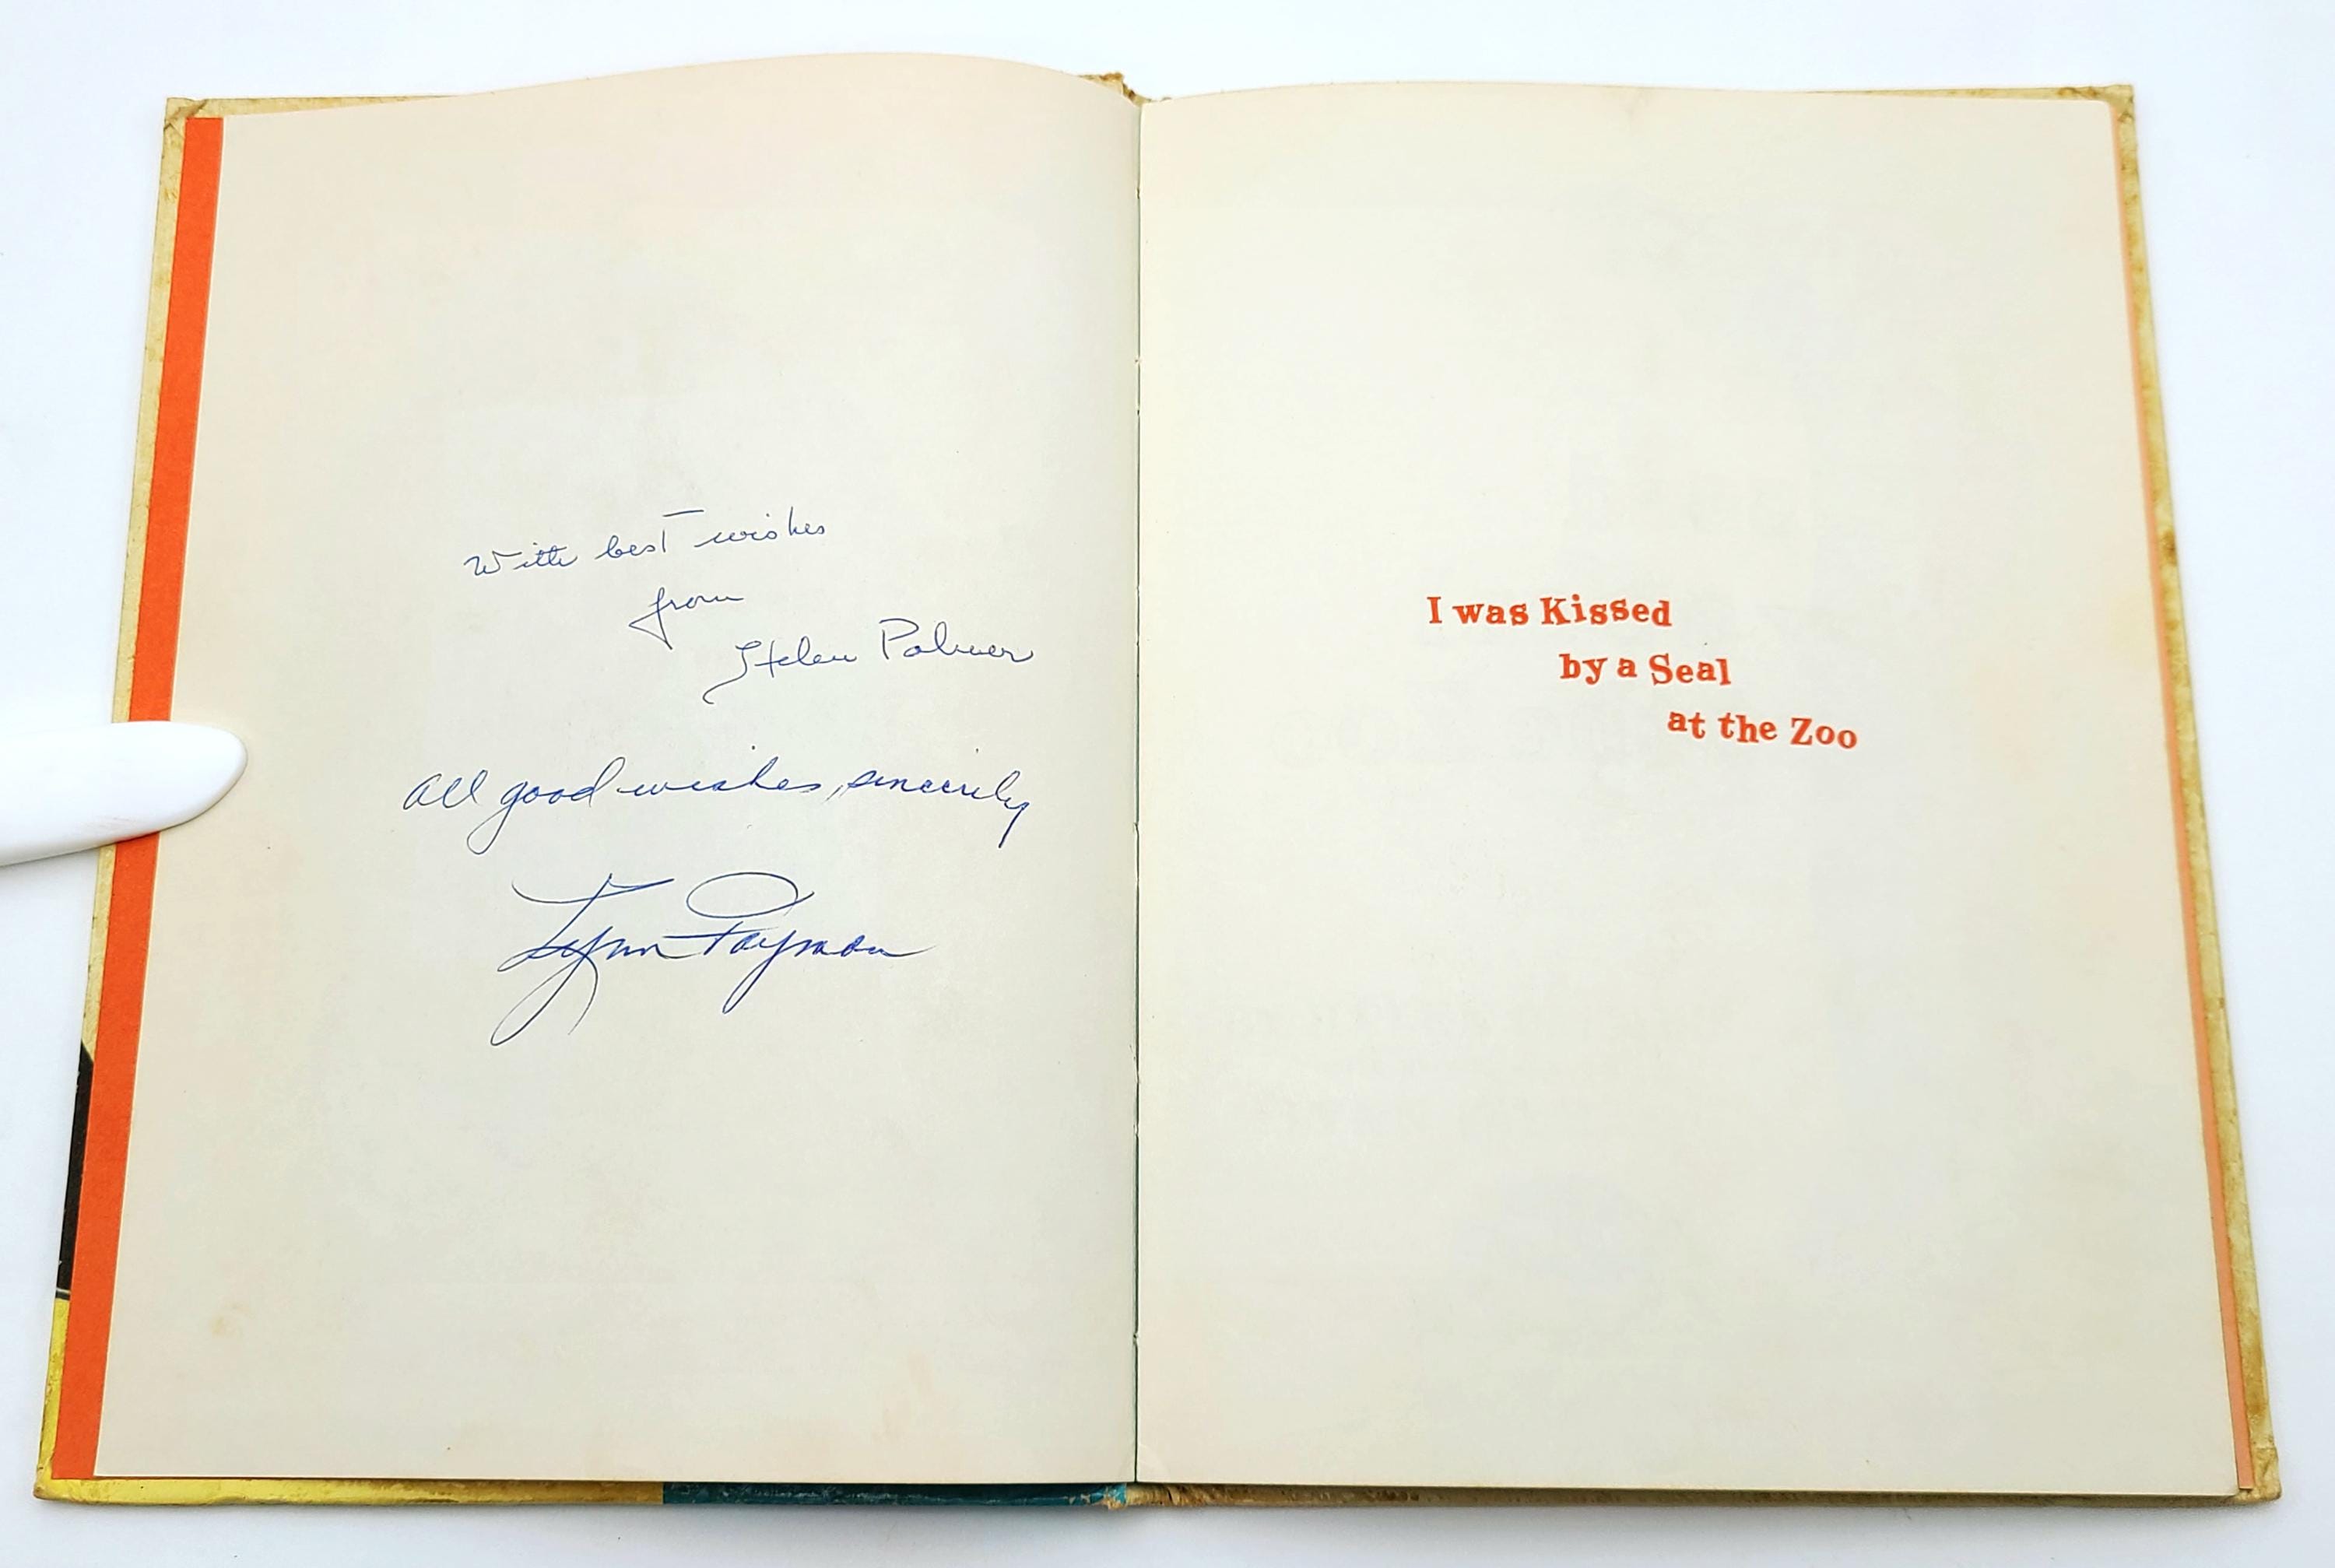 With best wishes
from
Helen Palmer
All good wishes, sincerely
Lynn Fayman
I was Kissed
by a Seal
at the Zoo